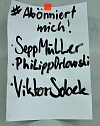 # Abonniert
mich!
• Sepp Müller
• Philipp Orlowski
• Viktor Sobeck